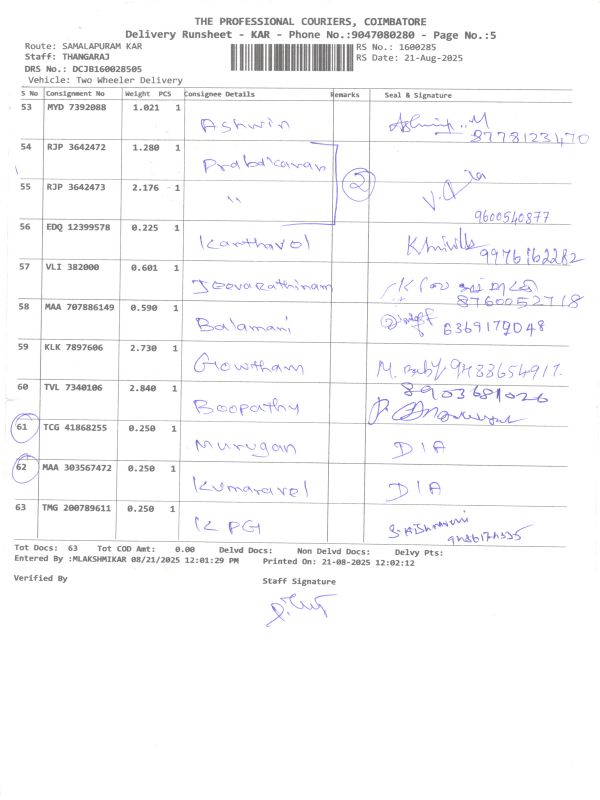 THE PROFESSIONAL COURIERS, COIMBATORE
Delivery Runsheet - KAR - Phone No.:9047080280 - Page No.:5
Route: SAMALAPURAM KAR RS No.: 1600285
Staff: THANGARAJ RS Date: 21-Aug-2025
DRS No.: DCJB160028505
Vehicle: Two Wheeler Delivery
S No Consignment No Weight PCS Consignee Details Remarks Seal & Signature
53 MYD 7392088 1.021 1 Ashwin 8778123470
54 RJP 3642472 1.280 1 Prabhakaran
2
55 RJP 3642473 2.176 1 " 9600540877
56 EDQ 12399578 0.225 1 Kanthavel 9976162282
57 VLI 382000 0.601 1 Jeevarathinam 8760052718
58 MAA 707886149 0.590 1 Balamani 6369179048
59 KLK 7897606 2.730 1 Gowtham M. Baby 9488654917
60 TVL 7340106 2.840 1 Boopathy 8903681026
61 TCG 41868255 0.250 1 Murugan D I A
62 MAA 303567472 0.250 1 Kumaravel D I A
63 TMG 200789611 0.250 1 K PG
Tot Docs: 63 Tot COD Amt: 0.00 Delvd Docs: Non Delvd Docs: Delvy Pts:
Entered By :MLAKSHMIKAR 08/21/2025 12:01:29 PM Printed On: 21-08-2025 12:02:12
Verified By Staff Signature